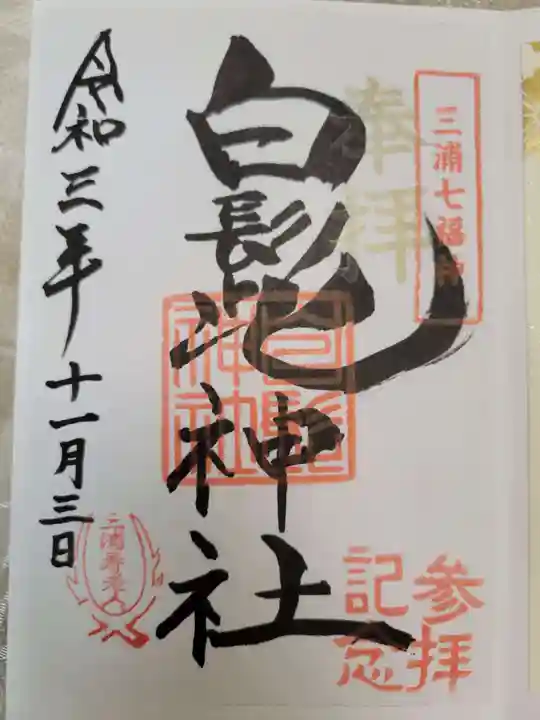 三浦七福神
奉拝
白髭神社
白髭神社
参拝
記念
令和三年十一月三日
三浦寿老人